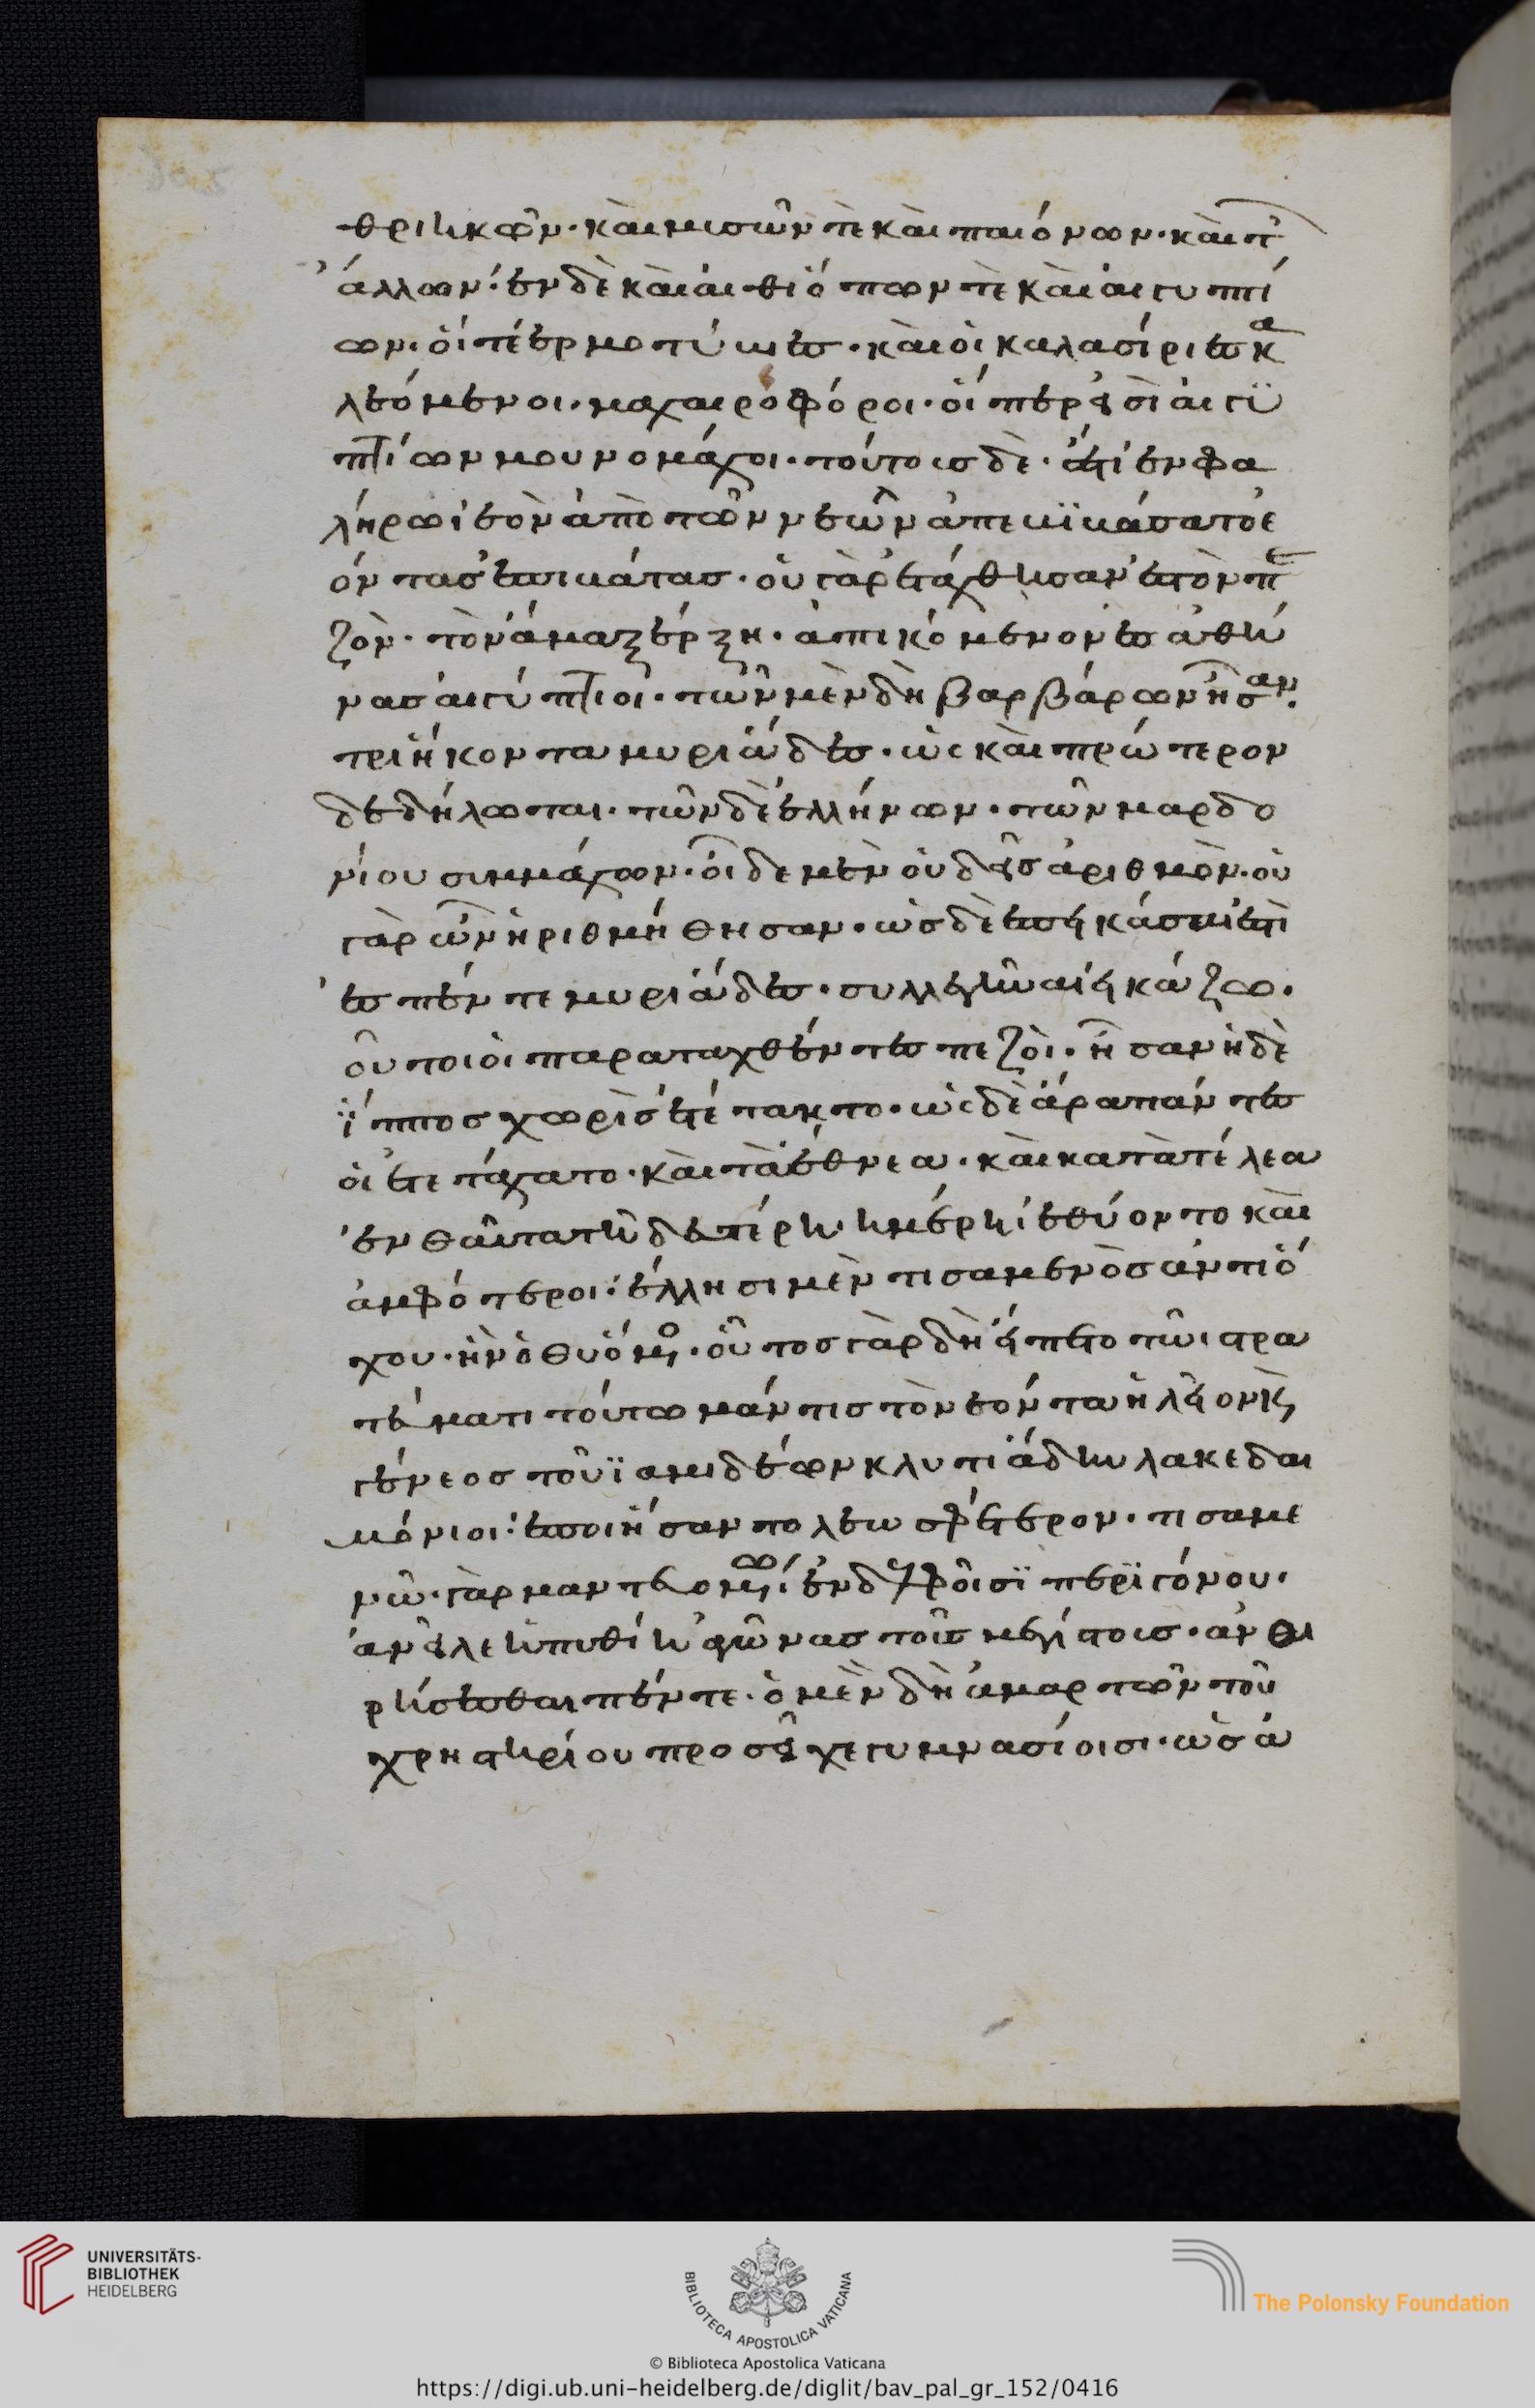 θρηικῶν· καὶ μυσῶν τε καὶ παιόνων· καὶ τ῀
ἄλλων· ἐν δὲ καὶ αἰθιόπων τε καὶ αἰγυπτί
ων· οἵ τε ἑρμοτύιες· καὶ οἱ καλασίριες κα
λεόμενοι· μαχαιροφόροι· οἵπερ εἰσὶ αἰγυ
πτίων μουνομάχοι· τούτοις δὲ· ἔτι ἐν φα
λήρωι ἐὸν ἀπὸ τῶν νεῶν ἀπεκϊκάσατο ἐ
όντας ἐπικάτας· οὐ γὰρ ἐτάχθησαν ἐς τὸν πε
ζὸν· τὸν ἅμα ξέρξη· ἀπικόμενον ἐς ἀθή
νας αἰγύπτιοι· τῶν μὲν δὴ βαρβάρων ἦσαν·
τριήκοντα μυριάδες· ὡς καὶ πρώτερον
δεδήλωται· τῶν δὲ ἑλλήνων· τῶν μαρδο
νίου συμμάχων· οἶδε μὲν οὐδεὶς ἀριθμὸν· οὐ
γὰρ ὦν ἠριθμήθησαν· ὡς δὲ ἐπεικάσαι ἐπὶ
ἐς πέντε μυριάδες· συλλεγῆναι εἰκάζω·
οὗτοι οἱ παραταχθέντες πεζοὶ· ἦσαν ἡ δὲ
ἵππος χωρὶς ἐτέτακτο· ὡς δὲ ἄρα πάντες
οἱ ἐτετάχατο· καὶ τὰ ἔθνεα· καὶ κατὰ τέλεα
ἐνθαῦτα τῆ δευτέρη ἡμέρηι ἐθύοντο καὶ
ἀμφότεροι· ἕλλησι μὲν τισαμενὸς ἀντιό
χου· ἦν ὁ θυόμενος· οὗτος γὰρ δὴ εἵπετο τῶι στρα
τεύματι τούτω μάντις τὸν ἐόντα ἠλεῖον κ(αὶ)
γένεος τοῦ ϊαμιδέων κλυτιάδην λακεδαι
μόνιοι· ἐποιήσαντο λεω σφέτερον· τισαμε
νῶ· γὰρ μαντευομένω· ἐν δελφοῖσϊ περὶ γόνου·
ἀνεῖλε ἡ πυθίη ἀγῶνας τοὺς μεγίστοις· ἀναι
ρήσεσθαι πέντε· ὁ μὲν δὴ ἁμαρτῶν τοῦ
χρηστηρίου προσεῖχε γυμνασίοισι· ὡς ἀ
UNIVERSITÄTS-
BIBLIOTHEK
HEIDELBERG
BIBLIOTECA APOSTOLICA VATICANA
The Polonsky Foundation
© Biblioteca Apostolica Vaticana
https://digi.ub.uni-heidelberg.de/diglit/bav_pal_gr_152/0416